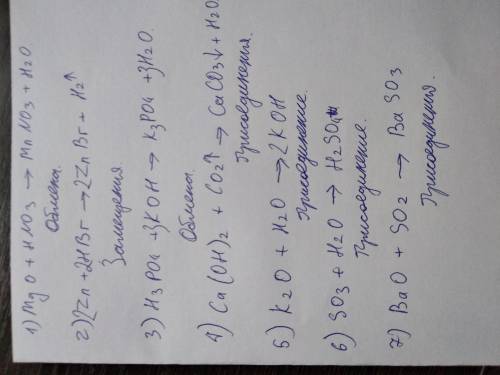 1) MgO + HNO3 → MnNO3 + H2O.
Обмена.
2) 2Zn + 2HBr → 2ZnBr + H2↑
Замещения.
3) H3PO4 + 3KOH → K3PO4 + 3H2O.
Обмена.
4) Ca(OH)2 + CO2↑ → CaCO3↓ + H2O
Присоединения.
5) K2O + H2O → 2KOH
Присоединение.
6) SO3 + H2O → H2SO4
Присоединение.
7) BaO + SO2 → BaSO3
Присоединения.